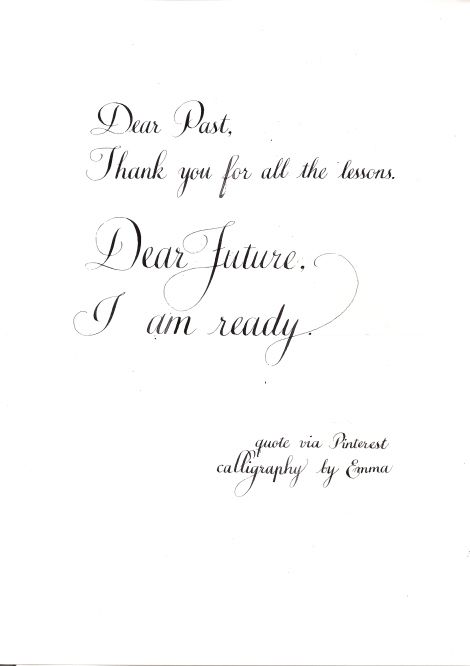 Dear Past,
Thank you for all the lessons.
Dear Future,
I am ready.
quote via Pinterest
calligraphy by Emma